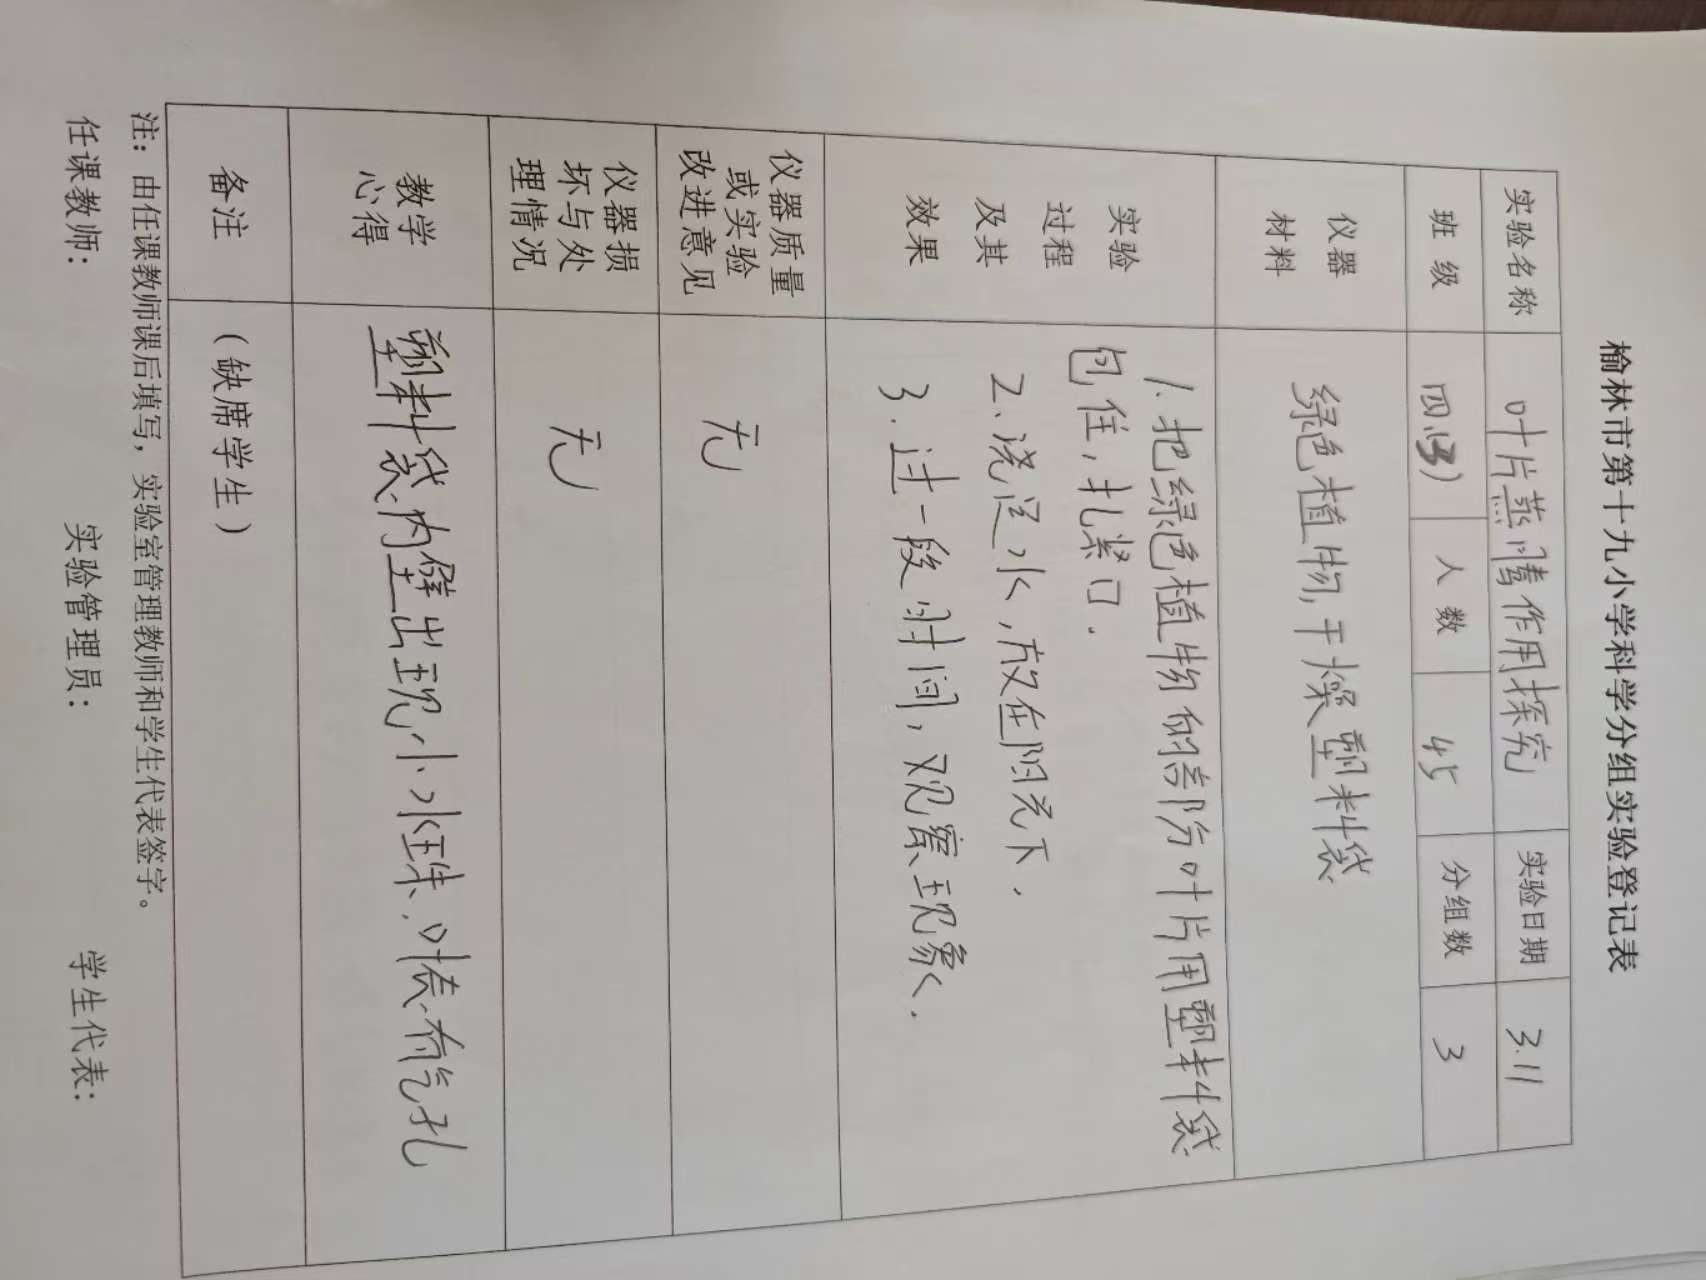 榆林市第十九小学科学分组实验登记表
实验名称 叶片蒸腾作用探究 实验日期 3.11
班 级 四(3) 人 数 45 分组数 3
仪器
材料
绿色植物,干燥塑料袋
实验
过程
及其
效果
1.把绿色植物的部分叶片用塑料袋
包住,扎紧口.
2.浇足水,放在阳光下.
3.过一段时间,观察现象.
仪器质量
或实验
改进意见
无
仪器损
坏与处
理情况
无
教学
心得
塑料袋内壁出现小水珠.叶表有气孔
备注
(缺席学生)
注：由任课教师课后填写，实验室管理教师和学生代表签字。
任课教师： 实验管理员： 学生代表：